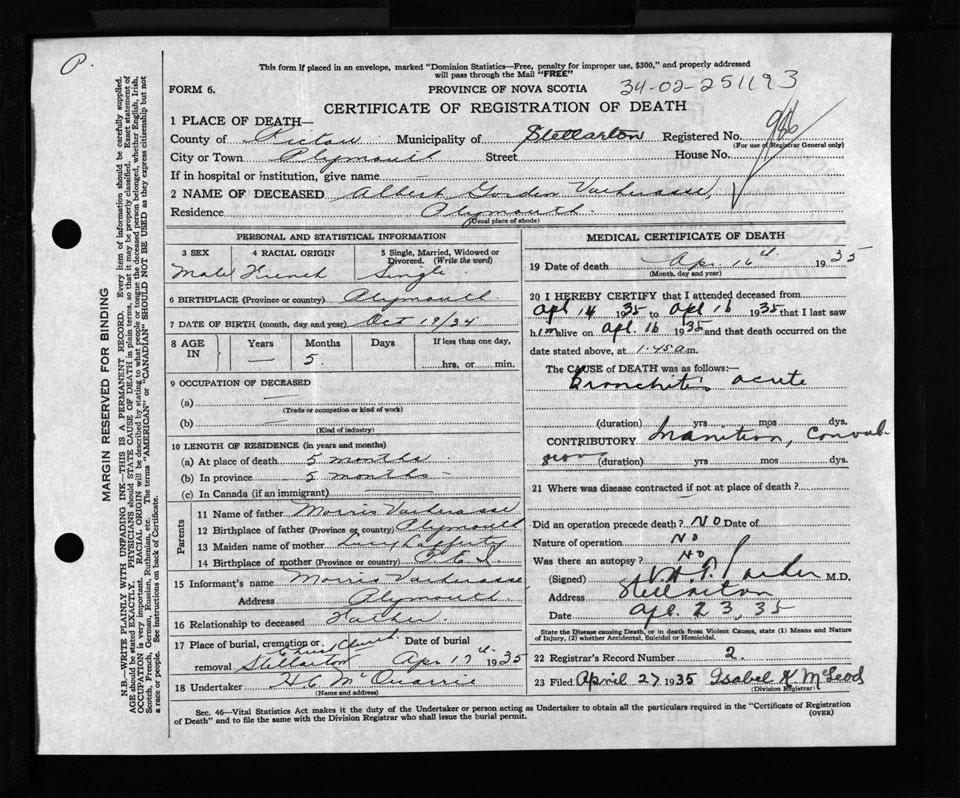 P.
This form if placed in an envelope, marked "Dominion Statistics—Free, penalty for improper use, $300," and properly addressed
will pass through the Mail "FREE"
FORM 6.
PROVINCE OF NOVA SCOTIA
34-02-251193
CERTIFICATE OF REGISTRATION OF DEATH
1 PLACE OF DEATH—
County of Pictou Municipality of Stellarton Registered No. 986
(For use of Registrar General only)
City or Town Plymouth Street House No.
If in hospital or institution, give name —
2 NAME OF DECEASED Albert Gordon
Residence Plymouth
(Usual place of abode)
PERSONAL AND STATISTICAL INFORMATION
3 SEX 4 RACIAL ORIGIN 5 Single, Married, Widowed or Divorced. (Write the word)
Male French Single
6 BIRTHPLACE (Province or country) Plymouth
7 DATE OF BIRTH (month, day and year) Oct 19/34
8 AGE IN Years Months Days If less than one day,
— 5 hrs, or min.
9 OCCUPATION OF DECEASED
(a) —
(Trade or occupation or kind of work)
(b) —
(Kind of industry)
10 LENGTH OF RESIDENCE (in years and months)
(a) At place of death 5 months
(b) In province 5 months
(c) In Canada (if an immigrant)
Parents
11 Name of father Morris
12 Birthplace of father (Province or country) Plymouth
13 Maiden name of mother Lucy Lafferty
14 Birthplace of mother (Province or country) P.E.I.
15 Informant's name Morris
Address Plymouth
16 Relationship to deceased Father
17 Place of burial, cremation or removal Stellarton Date of burial Apr 17th 1935
18 Undertaker H C McQuarrie
(Name and address)
MEDICAL CERTIFICATE OF DEATH
19 Date of death Apr 16th 1935
(Month, day and year)
20 I HEREBY CERTIFY that I attended deceased from
Apl 14 1935 to Apl 16 1935 that I last saw
him alive on Apl. 16 1935 and that death occurred on
date stated above, at 1.45 a.m.
The CAUSE of DEATH was as follows:—
Bronchitis acute
(duration) yrs mos dys.
CONTRIBUTORY Inanition, Convul-
sions (duration) yrs mos dys.
21 Where was disease contracted if not at place of death?
Did an operation precede death? No Date of
Nature of operation No
Was there an autopsy? No
(Signed) M.D.
Address Stellarton
Date Apl. 23, 35
State the Disease causing Death, or in death from Violent Causes, state (1) Means and Nature
of Injury, (2) whether Accidental, Suicidal or Homicidal.
22 Registrar's Record Number 2.
23 Filed April 27 1935 Isabel K McLeod
(Division Registrar)
Sec. 46—Vital Statistics Act makes it the duty of the Undertaker or person acting as Undertaker to obtain all the particulars required in the "Certificate of Registration
of Death" and to file the same with the Division Registrar who shall issue the burial permit.
(OVER)
MARGIN RESERVED FOR BINDING
N.B.—WRITE PLAINLY WITH UNFADING INK—THIS IS A PERMANENT RECORD. Every item of information should be carefully supplied.
AGE should be stated EXACTLY. PHYSICIANS should STATE CAUSE OF DEATH in plain terms, so that it may be properly classified. Exact statement of
OCCUPATION is very important. RACIAL ORIGIN will be described by stating to what people or tongue the deceased person belonged, whether English, Irish,
Scotch, French, German, Russian, Ruthenian, etc. The terms "AMERICAN" or "CANADIAN" SHOULD NOT BE USED as they express citizenship but not
a race or people. See instructions on back of Certificate.